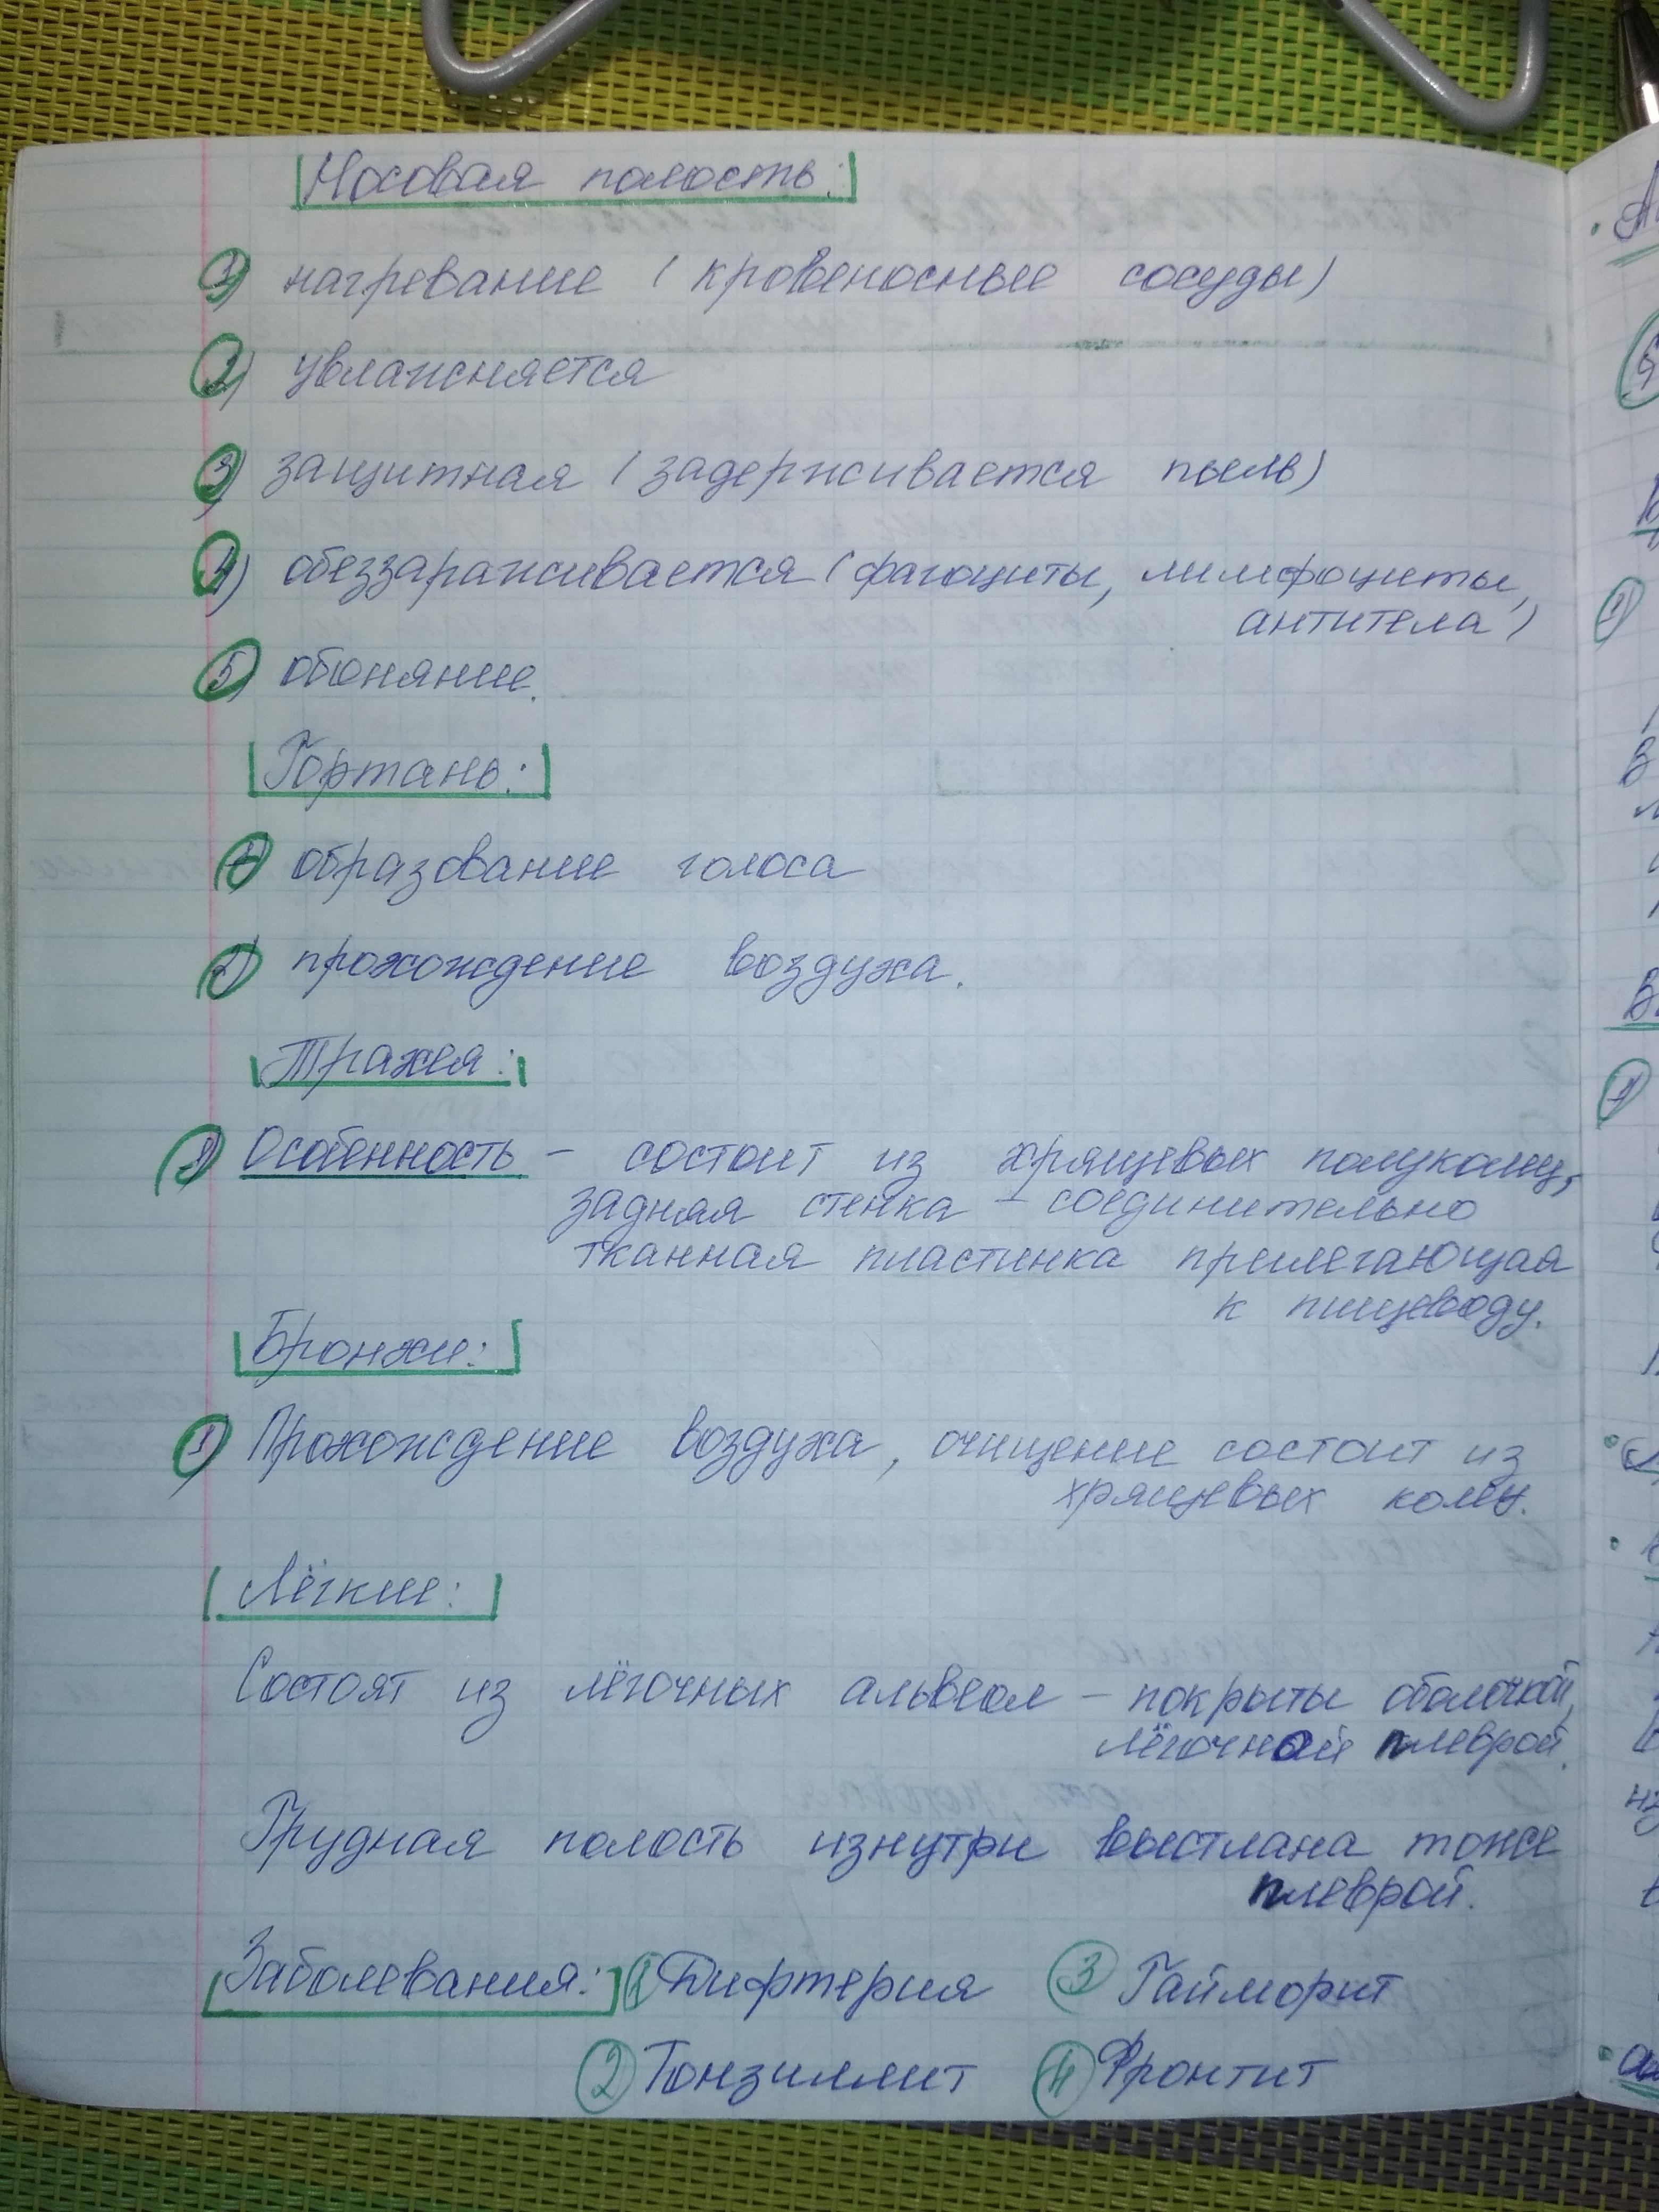 Носовая полость:
1) нагревание (кровеносные сосуды)
2) увлажняется
3) защитная (задерживается пыль)
4) обеззараживается (фагоциты, лимфоциты,
антитела)
5) обоняние.
Гортань:
1) образование голоса
2) прохождение воздуха.
Трахея:
1) Особенность – состоит из хрящевых полуколец,
задняя стенка – соединительно
тканная пластинка прилегающая
к пищеводу.
Бронхи:
1) Прохождение воздуха, очищение состоит из
хрящевых колец.
Лёгкие:
Состоят из лёгочных альвеол – покрыты оболочкой,
лёгочной плеврой.
Грудная полость изнутри выстлана тоже
плеврой.
Заболевания: 1 Дифтерия 3 Гайморит
2 Тонзиллит 4 Фронтит